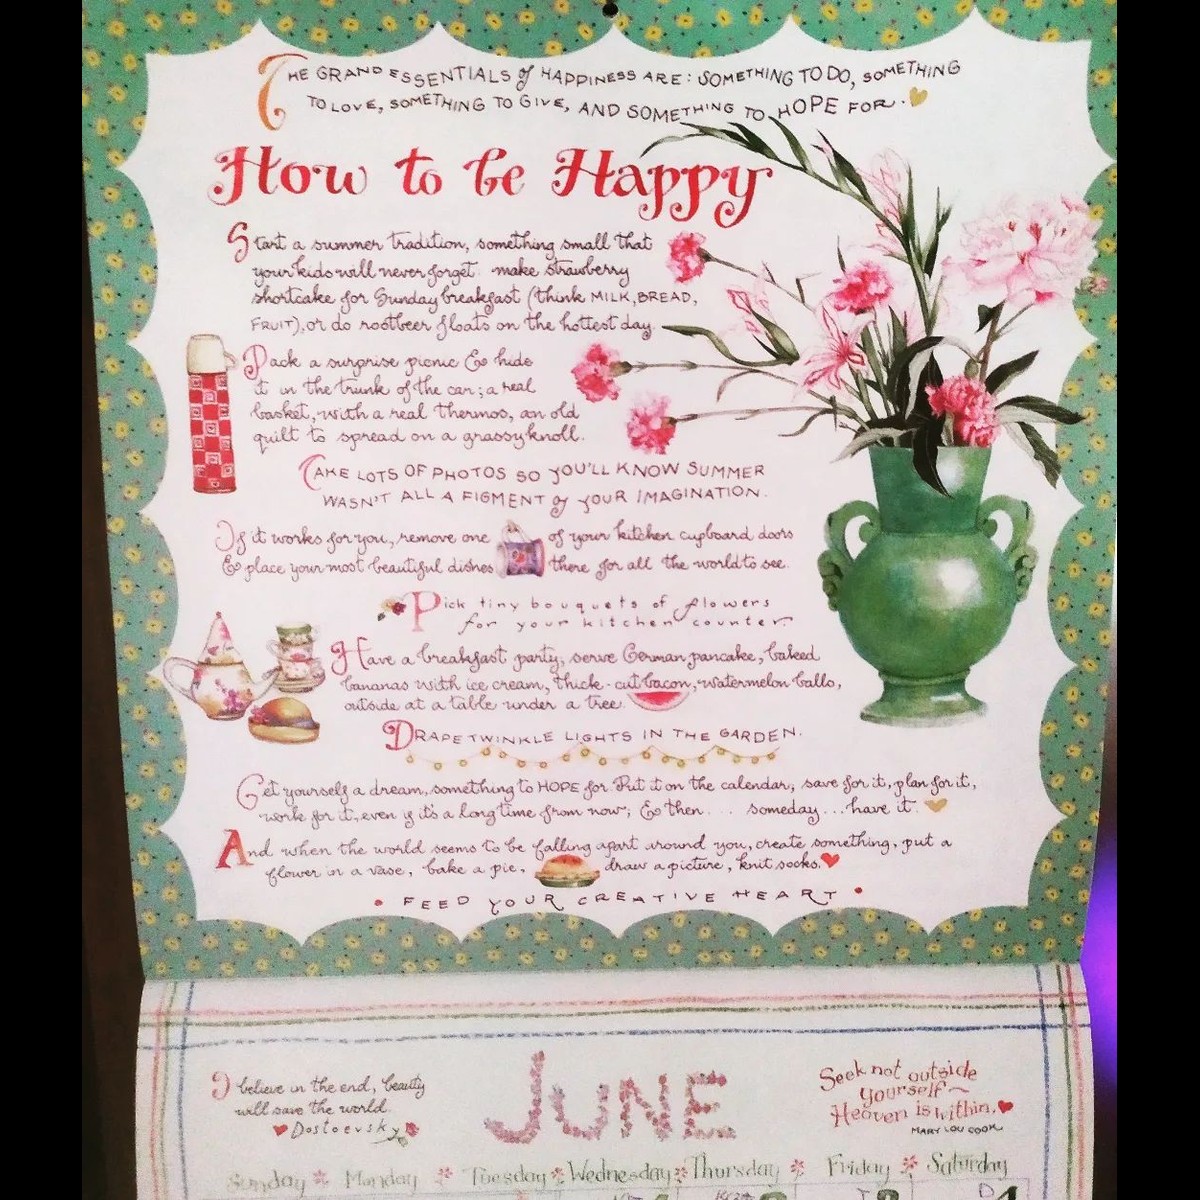 THE GRAND ESSENTIALS of HAPPINESS ARE: SOMETHING TO DO, SOMETHING
TO LOVE, SOMETHING TO GIVE, AND SOMETHING TO HOPE FOR.
How to be Happy
Start a summer tradition, something small that
your kids will never forget: make strawberry
shortcake for Sunday breakfast (think MILK, BREAD,
FRUIT), or do rootbeer floats on the hottest day.
Pack a surprise picnic & hide
it in the trunk of the car; a real
basket, with a real thermos, an old
quilt to spread on a grassy knoll.
TAKE LOTS OF PHOTOS SO YOU'LL KNOW SUMMER
WASN'T ALL A FIGMENT of YOUR IMAGINATION.
If it works for you, remove one of your kitchen cupboard doors
& place your most beautiful dishes there for all the world to see.
Pick tiny bouquets of flowers
for your kitchen counter.
Have a breakfast party, serve German pancake, baked
bananas with ice cream, thick-cut bacon, watermelon balls,
outside at a table under a tree.
DRAPE TWINKLE LIGHTS IN THE GARDEN.
Get yourself a dream, something to HOPE for. Put it on the calendar, save for it, plan for it,
work for it, even if it's a long time from now; & then... someday... have it.
And when the world seems to be falling apart around you, create something, put a
flower in a vase, bake a pie, draw a picture, knit socks.
• FEED YOUR CREATIVE HEART •
I believe in the end, beauty
will save the world.
Dostoevsky
JUNE
Seek not outside
yourself~
Heaven is within.
MARY LOU COOK
Sunday Monday Tuesday Wednesday Thursday Friday Saturday